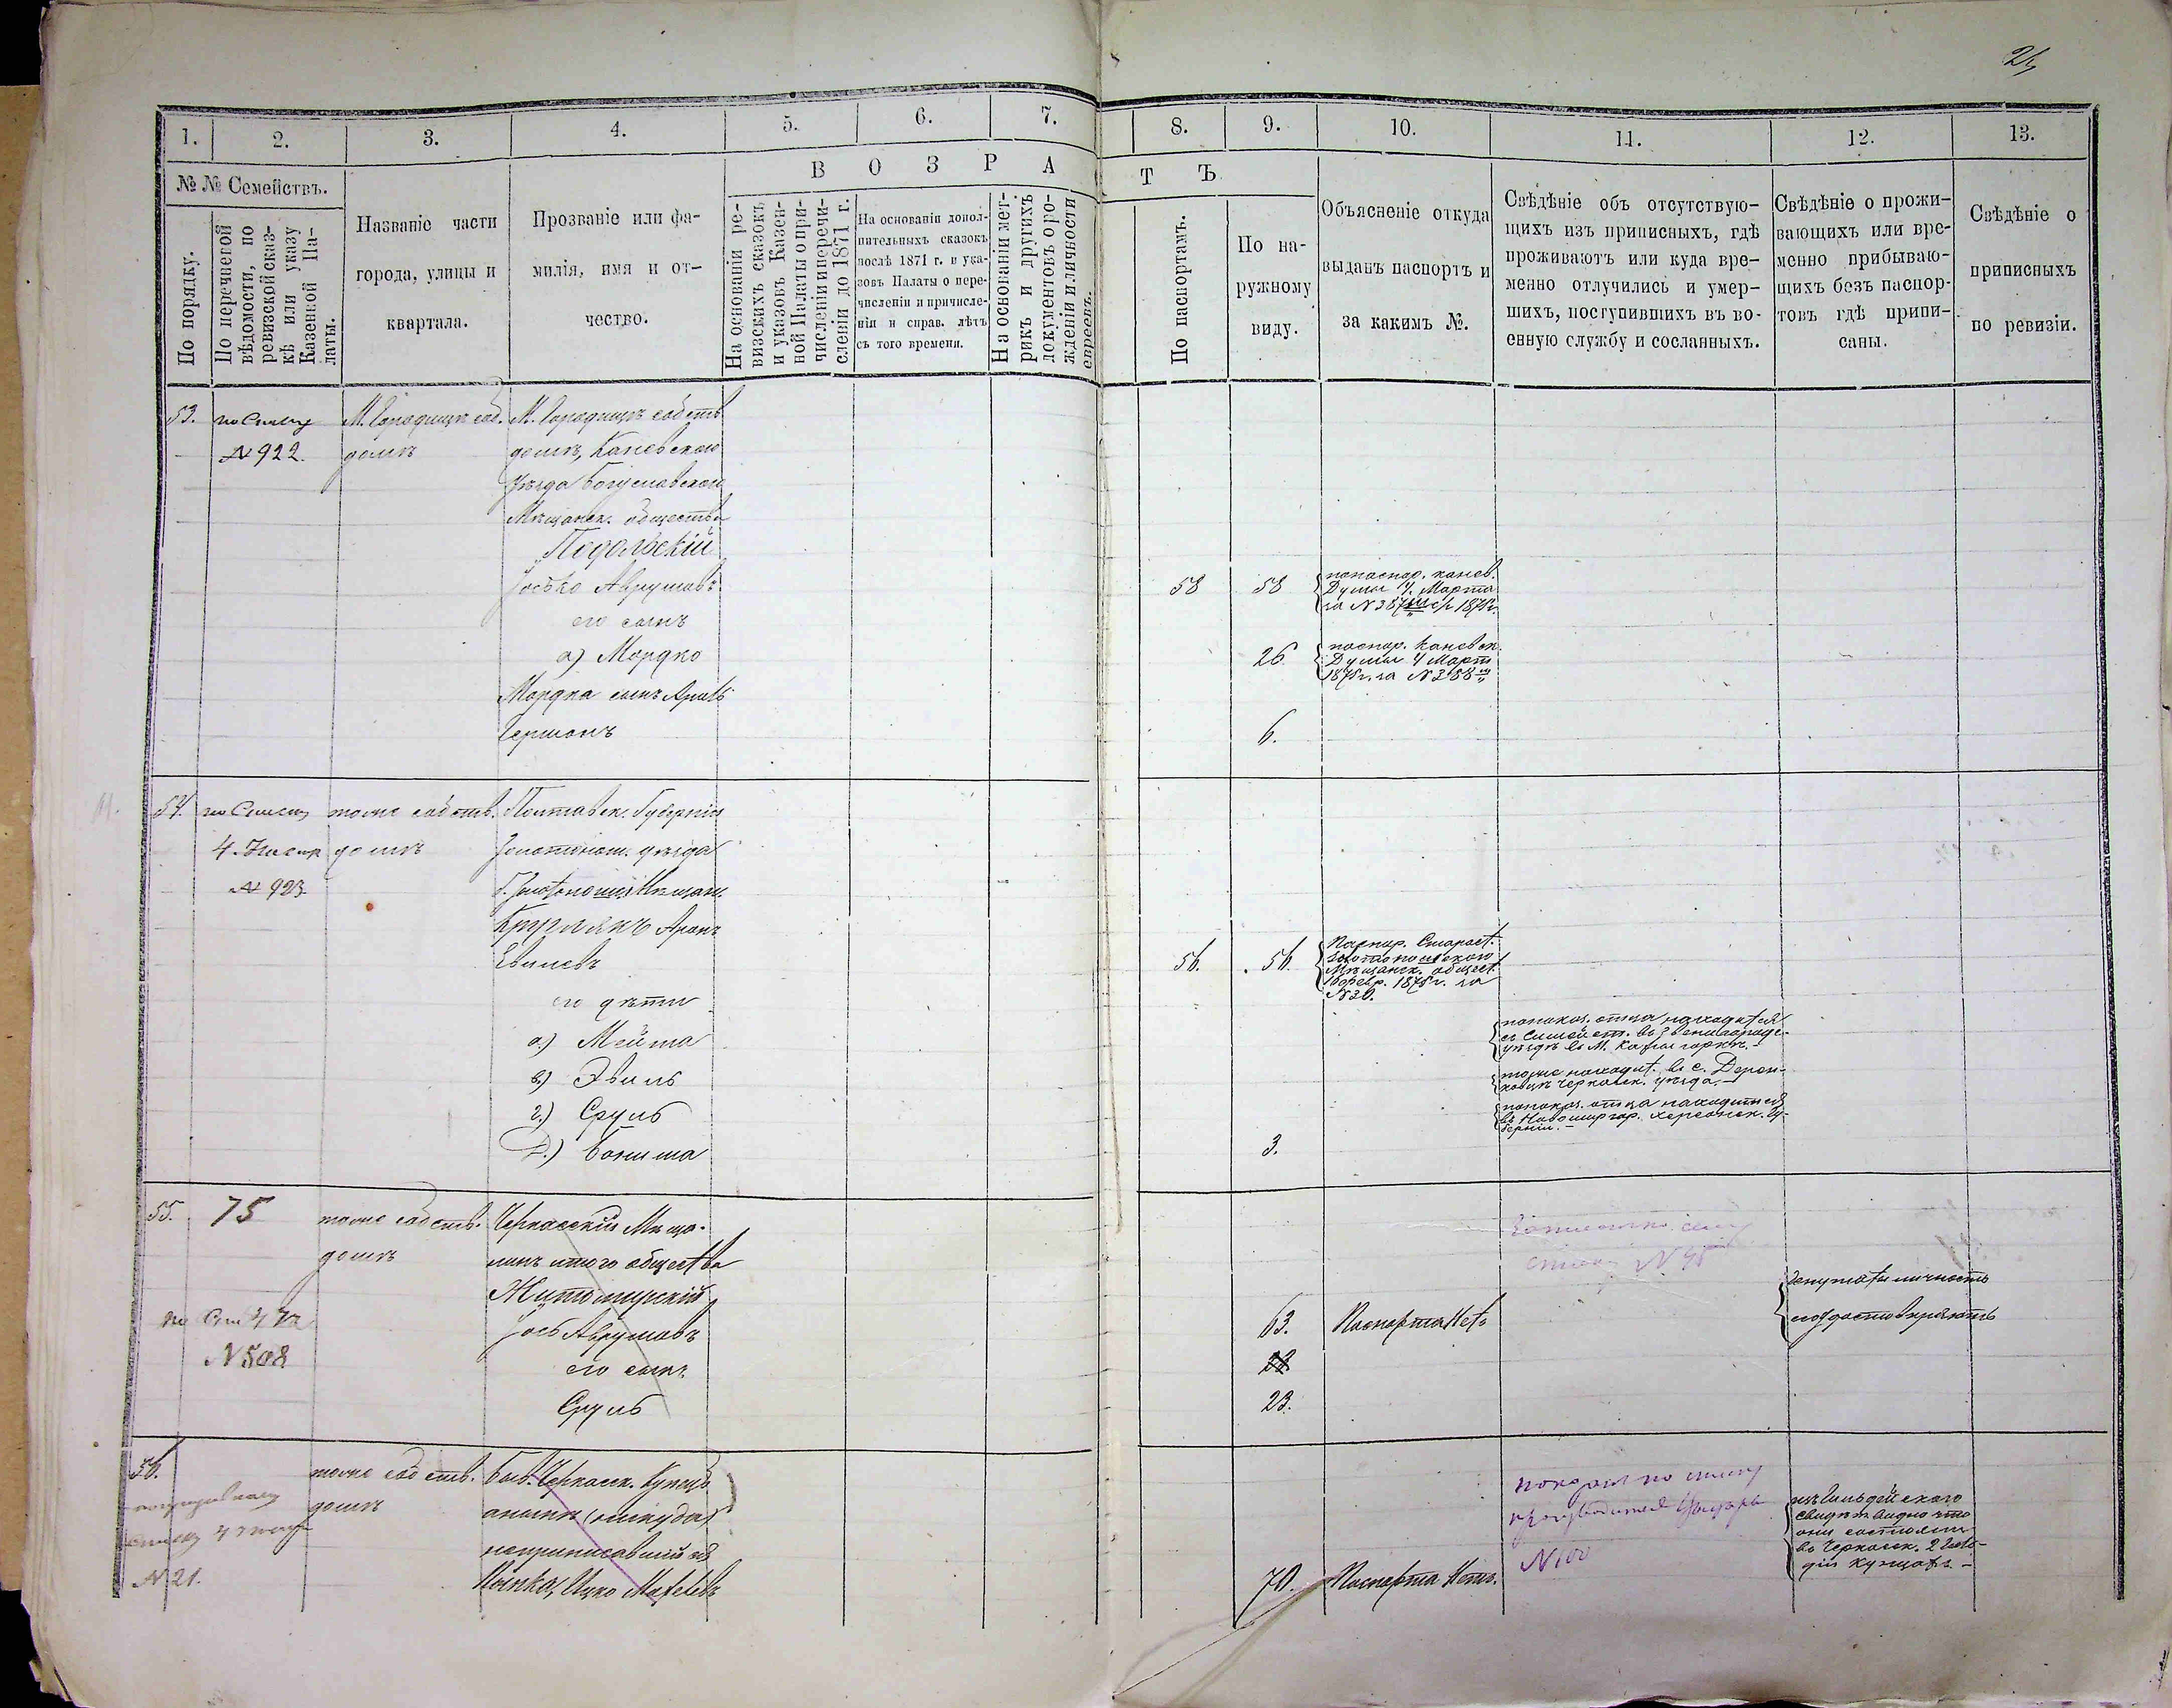 1.
2.
3.
4.
5.
6.
7.
8.
9.
10.
11.
12.
13.
№ № Семействъ.
В О З Р А
Т Ъ
По порядку.
По перечневой
вѣдомости, по
ревизской сказ-
кѣ или указу
Казенной Па-
латы.
Названіе части
города, улицы и
квартала.
Прозваніе или фа-
милія, имя и от-
чество.
На основаніи ре-
визскихъ сказокъ
и указовъ Казен-
ной Палаты о при-
численіи и перечи-
сленіи до 1871 г.
На основаніи допол-
нительныхъ сказокъ
послѣ 1871 г. и ука-
зовъ Палаты о пере-
численіи и причисле-
ніи и справ. лѣтъ
съ того времени.
На основаніи мет-
рикъ и другихъ
документовъ о ро-
жденіи и личности
евреевъ.
По паспортамъ.
По на-
ружному
виду.
Объясненіе откуда
выданъ паспортъ и
за какимъ №.
Свѣдѣніе объ отсутствую-
щихъ изъ приписныхъ, гдѣ
проживаютъ или куда вре-
менно отлучились и умер-
шихъ, поступившихъ въ во-
енную службу и сосланныхъ.
Свѣдѣніе о прожи-
вающихъ или вре-
менно прибываю-
щихъ безъ паспор-
товъ гдѣ припи-
саны.
Свѣдѣніе о
приписныхъ
по ревизіи.
53.
по Списку
№ 922.
М. Городищѣ соб.
домъ
М. Городищѣ собств
домъ, Каневскаго
Уѣзда Богуславскаго
Мѣщанск. общества
Подольскій
Іосько Аврумовъ
его сынъ
а) Мордко
Мордка сынъ Аронъ
Гершонъ
58
58
попаспор. канев.
Думы 4. Марта
за № 387
26
паспор. Каневск.
Думы 4 Март
1875 г. за № 388
6.
54.
по Списку
№ 923
тоже собств.
домъ
Полтавск. Губерніи
Золотонош. уѣзда
Г. Золотоноши Мѣщан.
Круглякъ Аронъ
Евилевъ
его дѣти
а.) Мейта
в.) Эвиль
г.) Сруль
Д.)
56.
56.
Паспор. Старост.
Золотоношскаго
Мѣщанск. общест.
февр. 1875 г. за
№ 20.
попоказ. отца находится
уѣздѣ въ М.
тоже находит. въ с. Дерен-
ковцѣ Черкасск. уѣзда.
попоказ. отца находится
въ Новомиргор. Херсонск. Гу-
берніи.
3.
55.
75
№ 508
тоже собств.
домъ
Черкасскій Мѣща-
нинъ итого общества
Житомирскій
Іось Аврумовъ
его сынъ
Сруль
63.
23.
Паспорта Нетъ
Депутаты личность
его удостовѣряютъ
56.
№ 21.
тоже собств.
домъ
Быв. Черкасск. Купецъ
анынѣ (никуда)
неприписавшійся
Ицко
70.
Паспорта Нетъ.
№ 100
они состояли
въ Черкасск. 2 Гиль-
діи Купцовъ